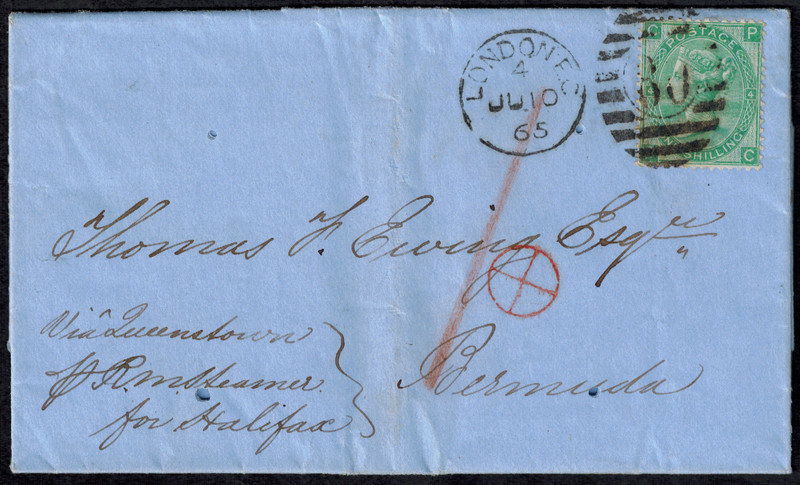 LONDON E.C
4
JU 10
65
C P
POSTAGE
4
SHILLING
C
60
Thomas F. Ewing Esqre
Via Queenstown
p R.M Steamer
for Halifax
Bermuda